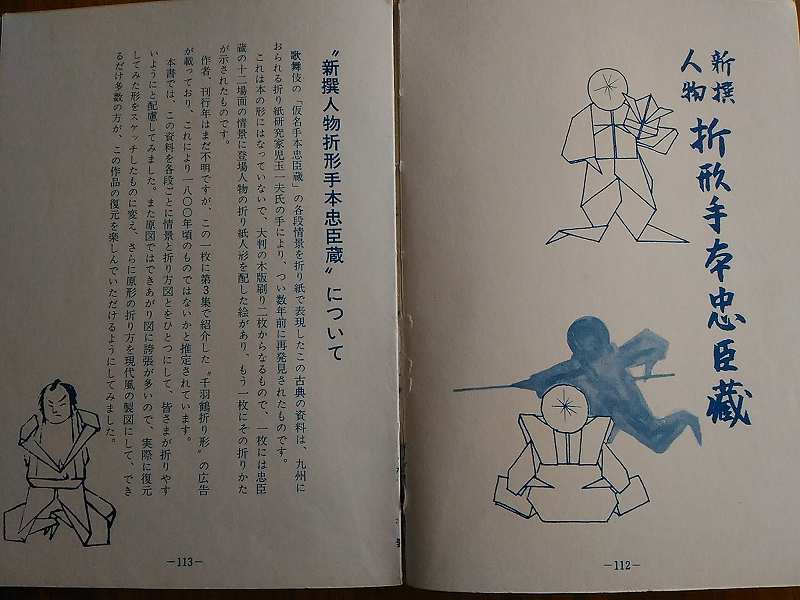 新撰
人物
折形手本忠臣蔵
—112—
〝新撰人物折形手本忠臣蔵〟について
歌舞伎の「仮名手本忠臣蔵」の各段情景を折り紙で表現したこの古典の資料は、九州に
おられる折り紙研究家児玉一夫氏の手により、つい数年前に再発見されたものです。
これは本の形にはなっていないで、大判の木版刷り二枚からなるもので、一枚には忠臣
蔵の十二場面の情景に登場人物の折り紙人形を配した絵があり、もう一枚にその折りかた
が示されたものです。
作者、刊行年はまだ不明ですが、この一枚に第3集で紹介した〝千羽鶴折り形〟の広告
が載っており、これにより一八〇〇年頃のものではないかと推定されています。
本書では、この資料を各段ごとに情景と折り方図とをひとつにして、皆さまが折りやす
いようにと配慮してみました。また原図ではできあがり図に誇張が多いので、実際に復元
してみた形をスケッチしたものに変え、さらに原形の折り方を現代風の製図にして、でき
るだけ多数の方が、この作品の復元を楽しんでいただけるようにしてみました。
—113—